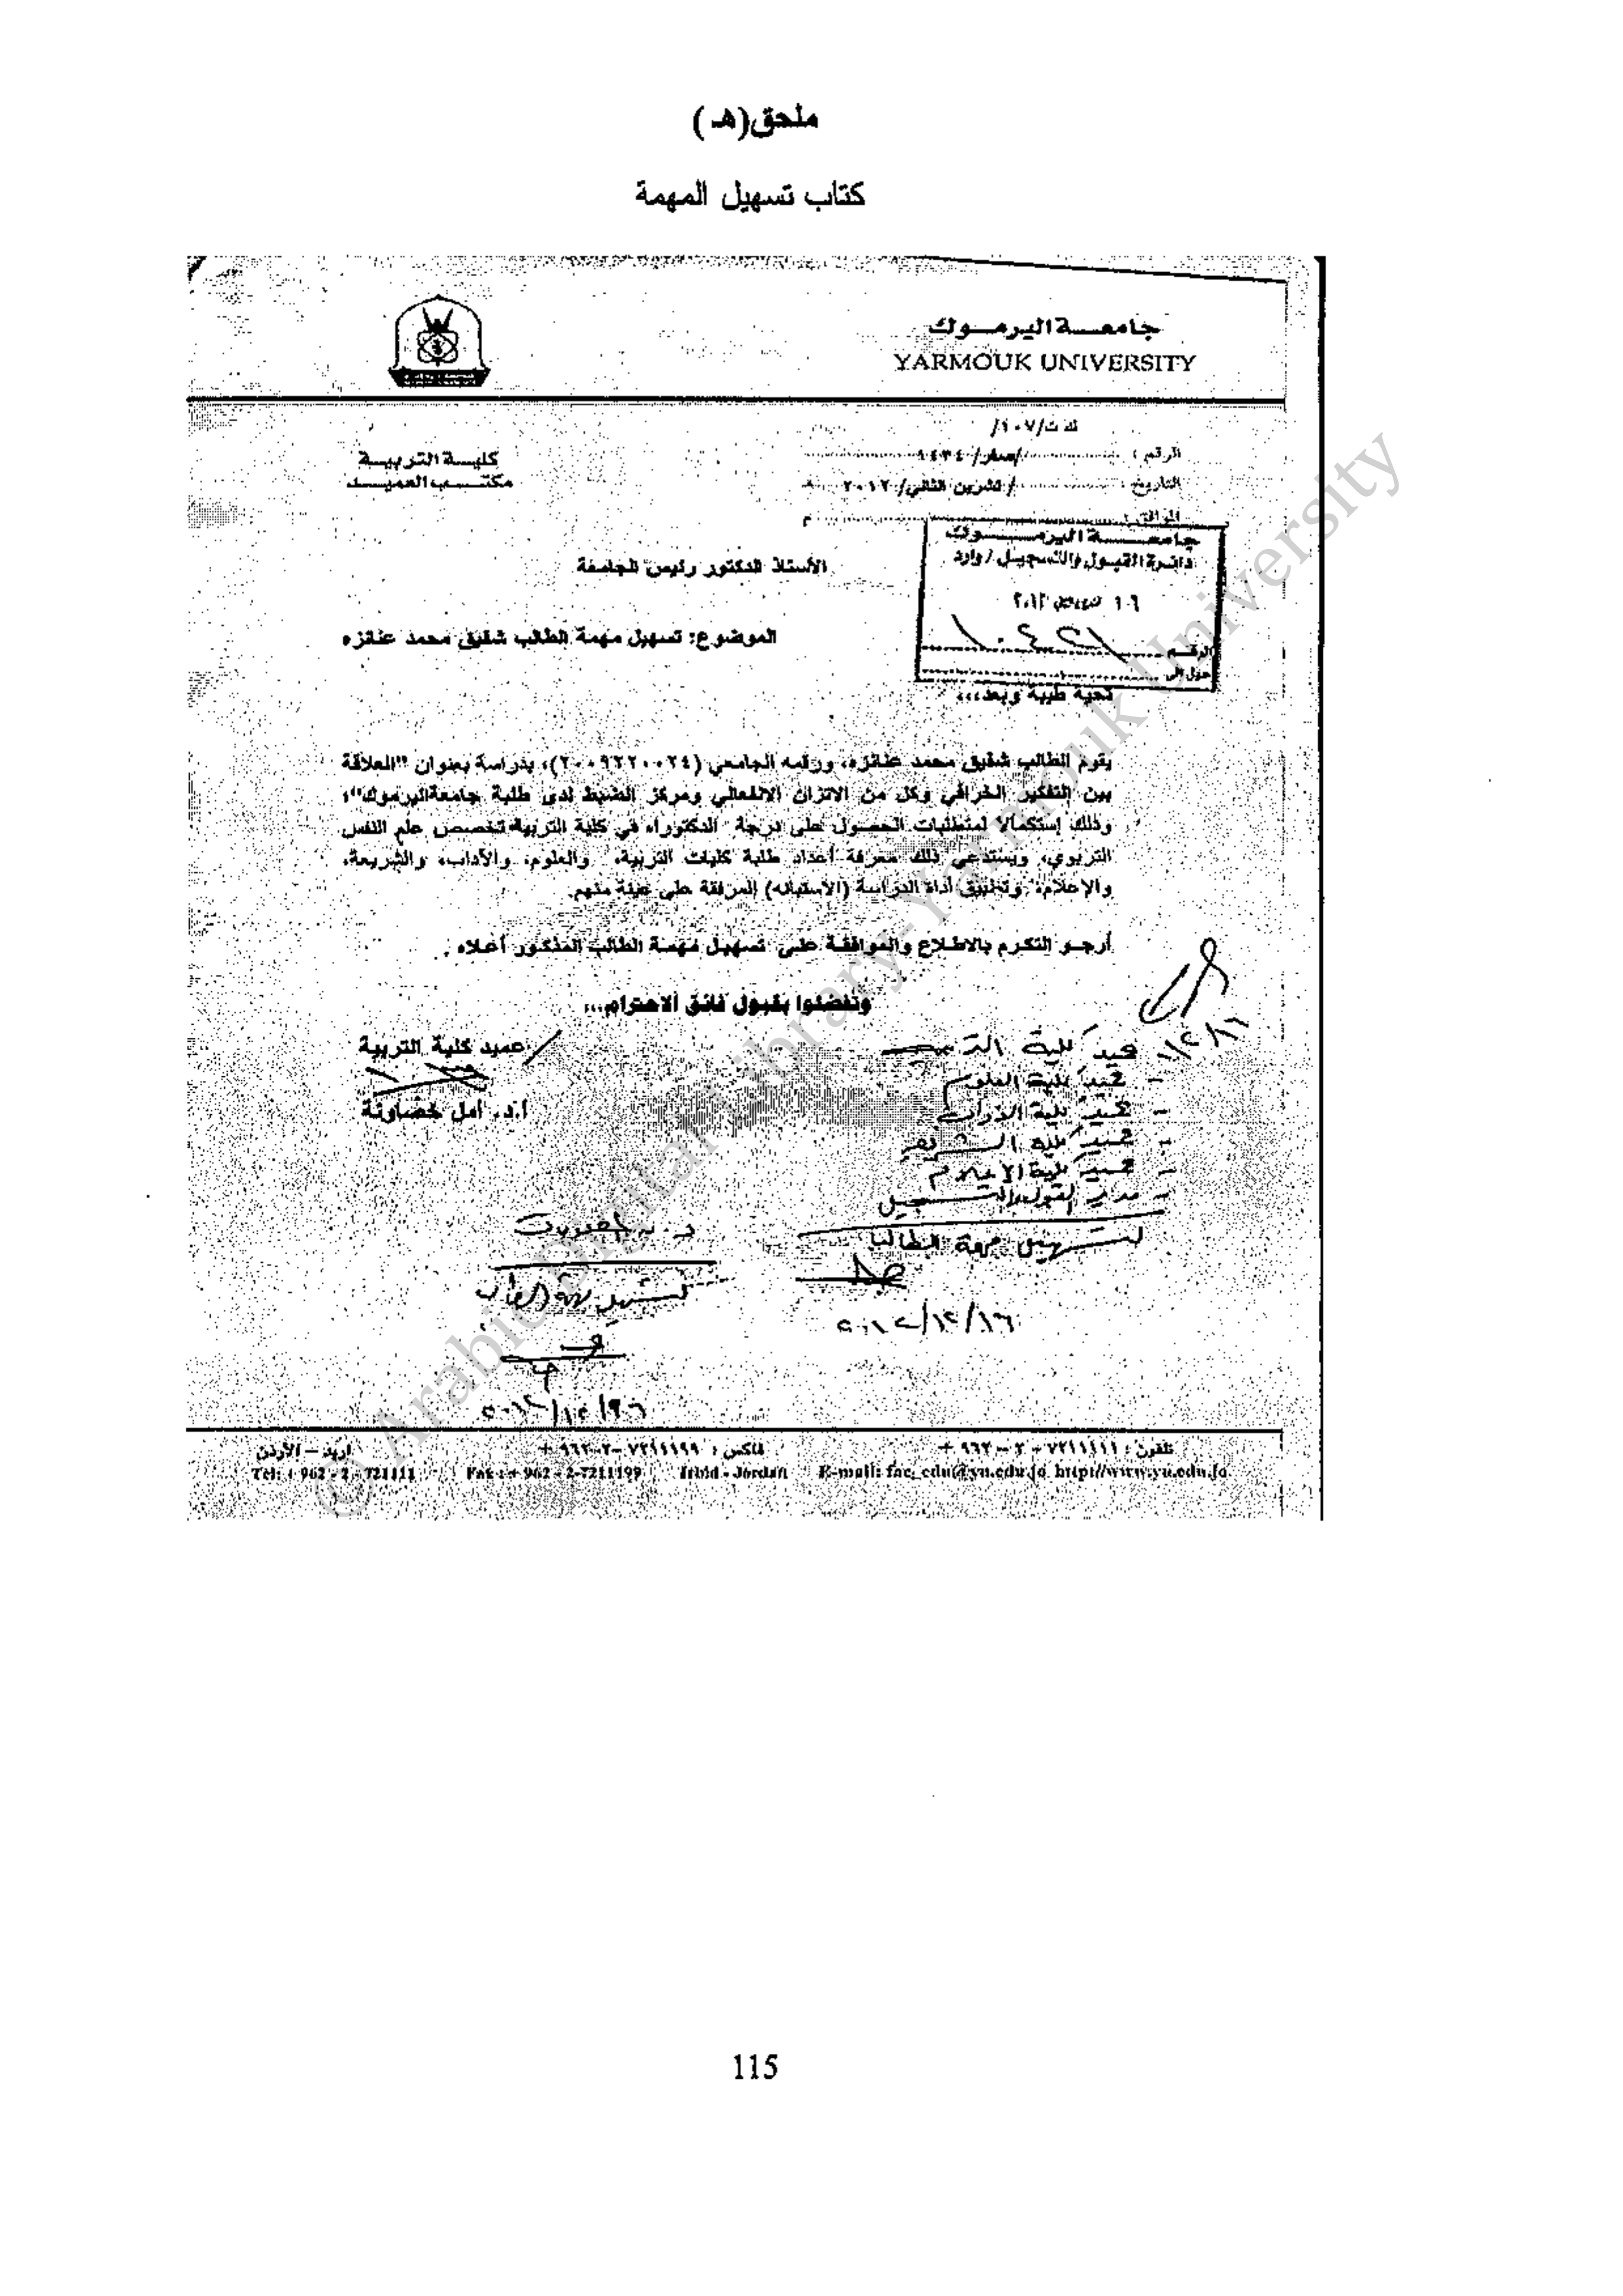 ملحق(هـ)
كتاب تسهيل المهمة
جامعـــة اليرمــوك
YARMOUK UNIVERSITY
ك ت/١٠٧/
الرقم :
كليـــة التربيـــة
مكتـــب العميـــد
التاريخ : / تشرين الثاني/ ٢٠١٢
الموافق : م
جامعـــة اليرمـــوك
دائرة القبول والتسجيل / وارد
الأستاذ الدكتور رئيس الجامعة
الرقم
حول إلى
الموضوع: تسهيل مهمة الطالب شفيق محمد عنانزه
تحية طيبة وبعد،،،
يقوم الطالب شفيق محمد عنانزه، ورقمه الجامعي بدراسة بعنوان "العلاقة
بين التفكير الخرافي وكل من الاتزان الانفعالي ومركز الضبط لدى طلبة جامعةاليرموك"،
وذلك إستكمالا لمتطلبات الحصول على درجة الدكتوراه في كلية التربية تخصص علم النفس
التربوي، ويستدعي ذلك معرفة أعداد طلبة كليات التربية، والعلوم، والآداب، والشريعة،
والإعلام، وتطبيق أداة الدراسة (الاستبانه) المرفقة على عينة منهم.
أرجو التكرم بالاطلاع والموافقة على تسهيل مهمة الطالب المذكور أعلاه .
وتفضلوا بقبول فائق الاحترام...
عميد كلية التربية
أ.د. أمل خصاونة
عميد كلية التربية
- عميد كلية العلوم
- عميد كلية الآداب
- عميد كلية الشريعة
- عميد كلية الإعلام
- مدير القبول والتسجيل
لتسهيل مهمة الطالب
٢٠١٢/١٢/١٦
لتسهيل مهمة الطالب
تلفون : ٧٢١١١١١ - ٢ - ٩٦٢ + فاكس : ٧٢١١١٩٩ -٢- ٩٦٢ + اربد – الأردن
Tel: + 962 - 2 - 721111 Fax: + 962 - 2-7211199 Irbid - Jordan E-mail: fac_edu@yu.edu.jo http://www.yu.edu.jo
© Arabic Digital Library-Yarmouk University
115